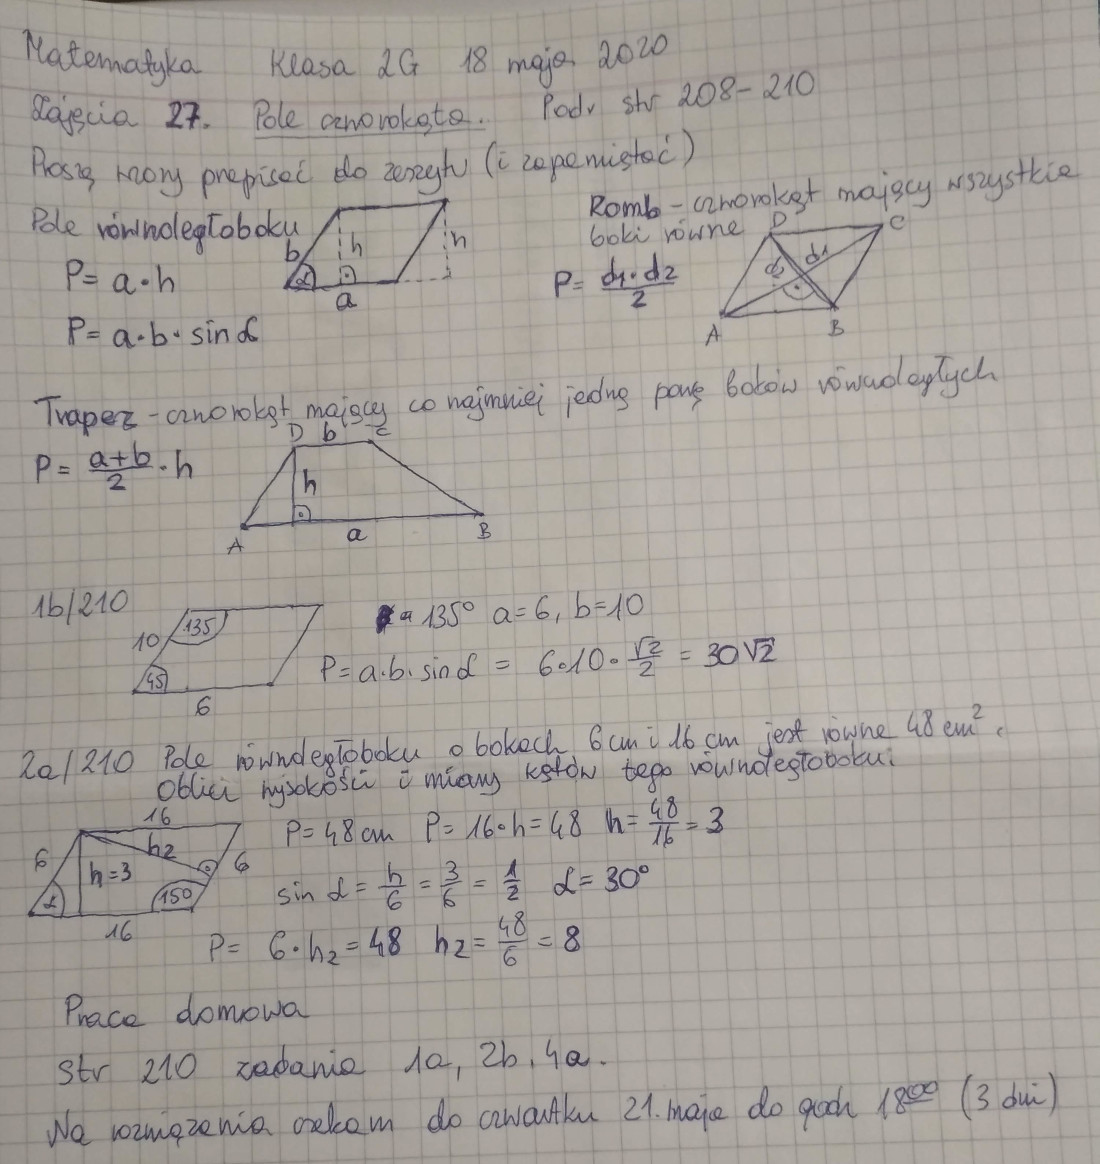 Matematyka Klasa 2G 18 maja 2020
Zajęcia 27. Pole czworokąta. Podr str 208-210
Proszę wzory przepisać do zeszytu (i zapamiętać)
Pole równoległoboku
P = a·h
P = a·b·sin α
b h h
α
a
Romb - czworokąt mający wszystkie
boki równe
P = d1·d2/2
D C
d2 d1
A B
Trapez - czworokąt mający co najmniej jedną parę boków równoległych
P = a+b/2 · h
D b C
h
A a B
1b/210
10 135
45
6
α = 135° a=6, b=10
P = a·b·sin α = 6·10·√2/2 = 30√2
2a/210 Pole równoległoboku o bokach 6 cm i 16 cm jest równe 48 cm².
Oblicz wysokości i miary kątów tego równoległoboku.
16
6 h2 6
h=3
α 150
16
P=48cm P=16·h=48 h=48/16=3
sin α = h/6 = 3/6 = 1/2 α=30°
P= 6·h2=48 h2=48/6=8
Praca domowa
str 210 zadania 1a, 2b, 4a.
Na rozwiązania czekam do czwartku 21. maja do godz 18⁰⁰ (3 dni)